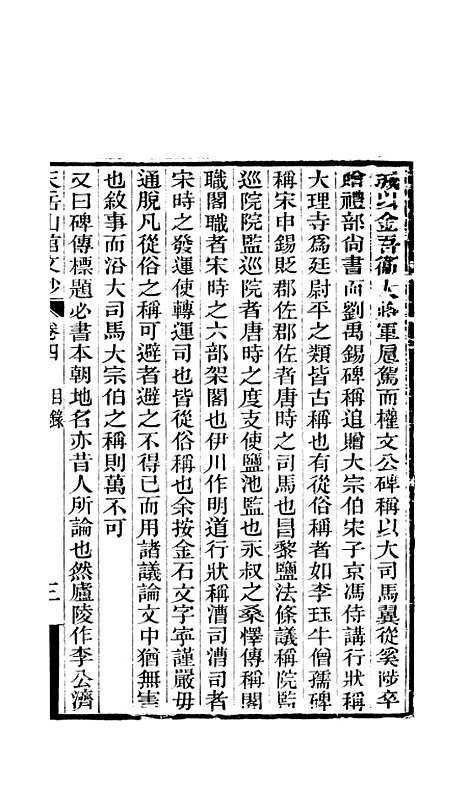 承以金吾衞大將軍扈駕而權文公碑稱以大司馬翼從奚陟卒
贈禮部尙書而劉禹錫碑稱追贈大宗伯宋子京馮侍講行狀稱
大理寺爲廷尉平之類皆古稱也有從俗稱者如李珏牛僧孺碑
稱宋申錫貶郡佐郡佐者唐時之司馬也昌黎鹽法條議稱院監
巡院院監巡院者唐時之度支使鹽池監也永叔之桑懌傳稱閣
職閣職者宋時之六部架閣也伊川作明道行狀稱漕司漕司者
宋時之發運使轉運司也皆從俗稱也余按金石文字寜謹嚴毋
通脫凡從俗之稱可避者避之不得已而用諸議論文中猶無害
也敘事而沿大司馬大宗伯之稱則萬不可
又曰碑傳標題必書本朝地名亦昔人所論也然廬陵作李公濟
天岳山館文鈔 卷四 目錄 三